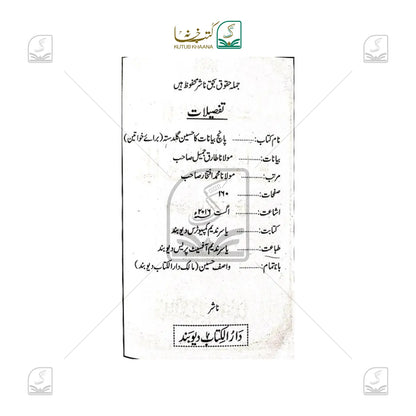 کتب خانہ
KUTUB KHAANA
جملہ حقوق بحق ناشر محفوظ ہیں
تفصیلات
نام کتاب:.......... پانچ بیانات کا حسین گلدستہ (برائے خواتین)
بیانات:.......... مولانا طارق جمیل صاحب
مرتب:.......... مولانا محمد افتخار صاحب
صفحات:.......... ۱۶۰
اشاعت:.......... اگست ۲۰۱۶ء
کتابت:.......... یاسر ندیم کمپیوٹرس دیوبند
طباعت:.......... یاسر ندیم آفسیٹ پریس دیوبند
باہتمام:.......... واصف حسین (مالک دار الکتاب دیوبند)
ناشر
دار الکتاب دیوبند